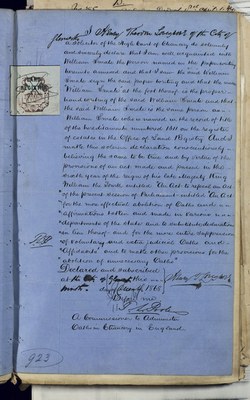 I Henry Thomas Sampson of the City of
a Solicitor of the High Court of Chancery do solemnly
and sincerely declare that I am well acquainted with
William Lamb the person named in the paper writing
hereunto annexed and that I saw the said William
Lamb sign the said paper writing and that the name
"William Lamb" at the foot thereof is the proper
handwriting of the said William Lamb and that
the said William Lamb is the same person as
William Lamb who is named in the record of title
of the hereditaments numbered 1161 on the register
of estates in the Office of Land Registry And I
make this solemn declaration conscientiously
believing the same to be true and by virtue of the
provisions of an act made and passed in the
sixth year of the reign of his late Majesty King
William the Fourth intituled "An Act to repeal an Act
of the present Session of Parliament intituled "An Act
"for the more effectual abolition of Oaths and
"affirmations taken and made in various
"departments of the state and to substitute declarations
"in lieu thereof and for the more entire suppression
of voluntary and extra judicial Oaths and
"Affidavits" and to make other provisions for the
abolition of unnecessary Oaths"
Declared and subscribed
at the City of this
day of 1868
Before me
A Commissioner to Administer
Oaths in Chancery in England.
923